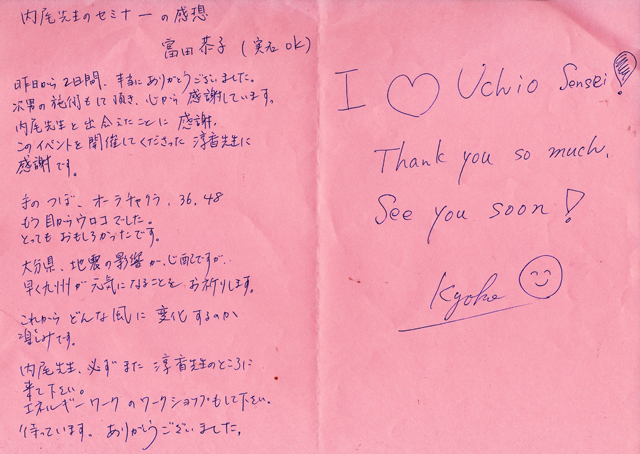 内尾先生のセミナーの感想
富田 恭子 (実名 ok)
昨日から2日間、本当にありがとうございました。
次男の施術もして頂き、心から感謝しています。
内尾先生と出会えたことに感謝。
このイベントを開催してくださった淳音先生に
感謝です。
手のつぼ、オーラチャクラ、36、48
もう目からウロコでした。
とってもおもしろかったです。
大分県、地震の影響が心配ですが、
早く九州が元気になることをお祈りします。
これからどんな風に変化するのか
楽しみです。
内尾先生、必ずまた淳音先生のところに
来て下さい。
エネルギーワークのワークショップもして下さい。
待っています。ありがとうございました。
I ♡ Uchio Sensei!
Thank you so much.
See you soon!
Kyoko